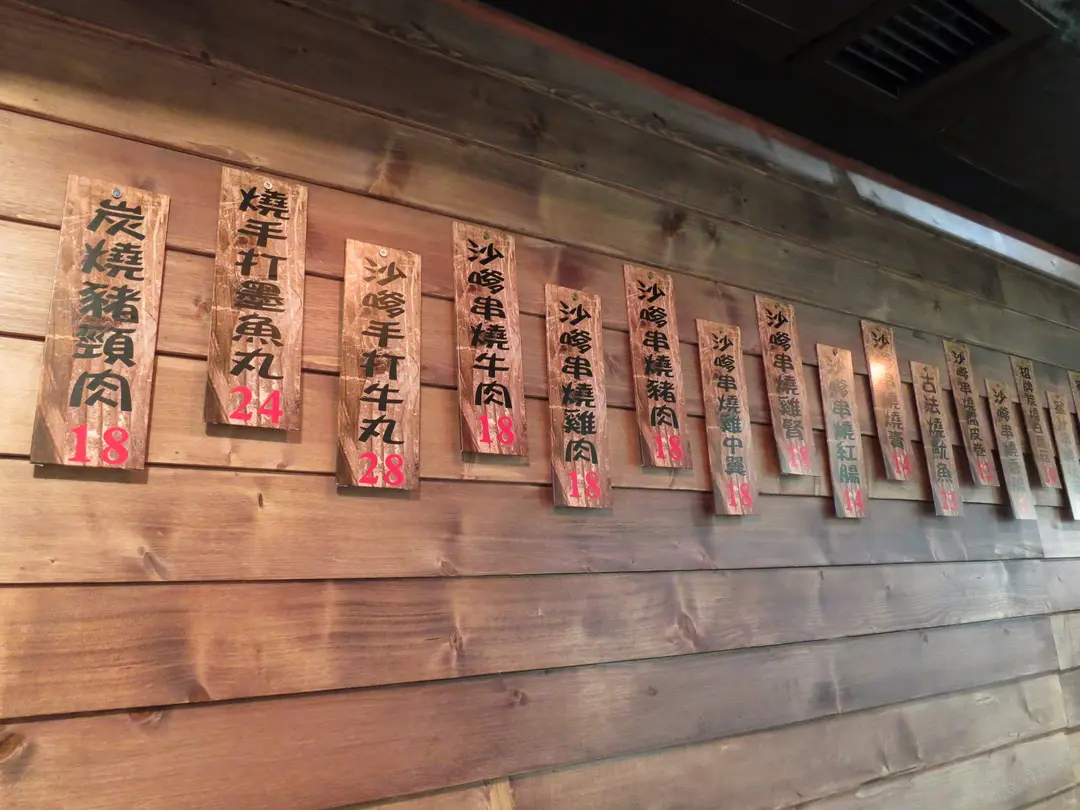 炭燒豬頸肉
18
燒手打墨魚丸
24
沙嗲手打牛丸
28
沙嗲串燒牛肉
18
沙嗲串燒雞肉
18
沙嗲串燒豬肉
18
沙嗲串燒雞中翼
18
沙嗲串燒雞腎
18
沙嗲串燒紅腸
14
沙
古法燒魷魚
沙嗲串燒腐皮卷
沙嗲串燒
招牌燒